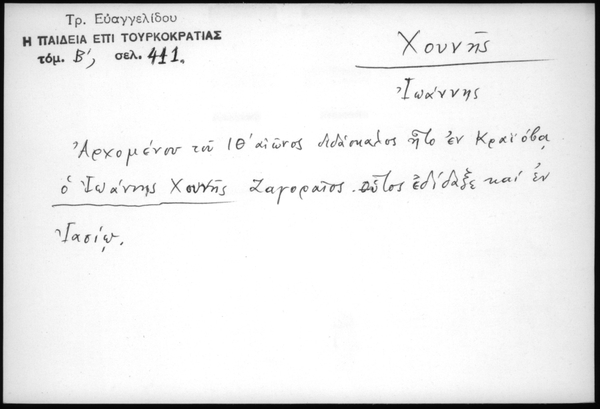 Τρ. Εὐαγγελίδου
Η ΠΑΙΔΕΙΑ ΕΠΙ ΤΟΥΡΚΟΚΡΑΤΙΑΣ
τόμ. Β', σελ. 411.
Χουνῆς
Ἰωάννης
Ἀρχομένου τοῦ ΙΘ' αἰῶνος διδάσκαλος ἦτο ἐν Κραϊόβᾳ
ὁ Ἰωάννης Χουνῆς Ζαγοραῖος. οὗτος ἐδίδαξε καί ἐν
Ἰασίῳ.